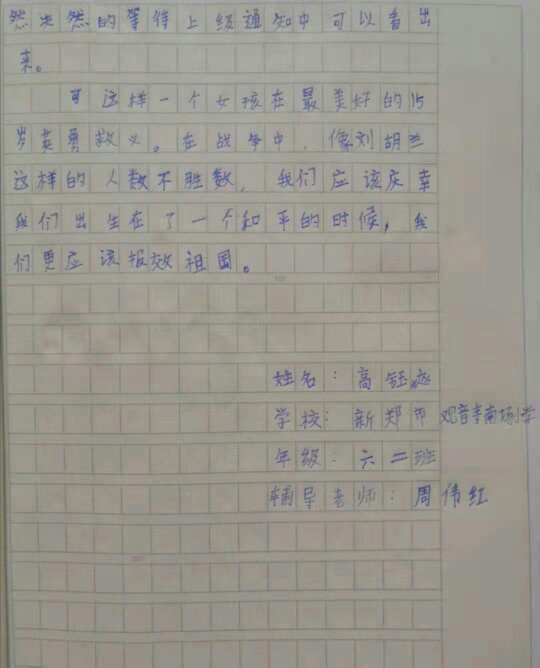 然决然的等待上级通知中可以看出
来。
可这样一个女孩在最美好的15
岁英勇救义。在战争中,像刘胡兰
这样的人数不胜数,我们应该庆幸
我们出生在了一个和平的时候,我
们更应该报效祖国。
姓名:高钰
学校:新郑市观音寺南场小学
年级:六二班
辅导老师:周伟红